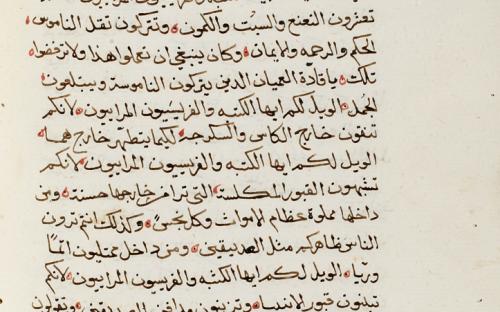 تعزرون النعنع والسبت والكمون وتتركون نقل الناموس
الحكم والرحمه والايمان وكان ينبغي ان تعملوا هذا ولا ترفضوا
تلك يا قادة العميان الذين يتركون الناموسة ويبتلعون
الجمل الويل لكم ايها الكتبه والفريسيون المرايون لانكم
تنقون خارج الكاس والسكرجه لكيما يتطهر خارجهما
الويل لكم ايها الكتبه والفريسيون المرايون لانكم
تشبهون القبور المكلسة التي ترا من خارجها حسنة ومن
داخلها مملوة عظام الاموات وكل نجس وكذلك انتم ترون
الناس ظاهركم مثل الصديقين ومن داخل ممتليون اثما
وريا الويل لكم ايها الكتبه والفريسيون المرايون لانكم
تبنون قبور الانبيا وتزينون مدافن الصديقين وتقولون